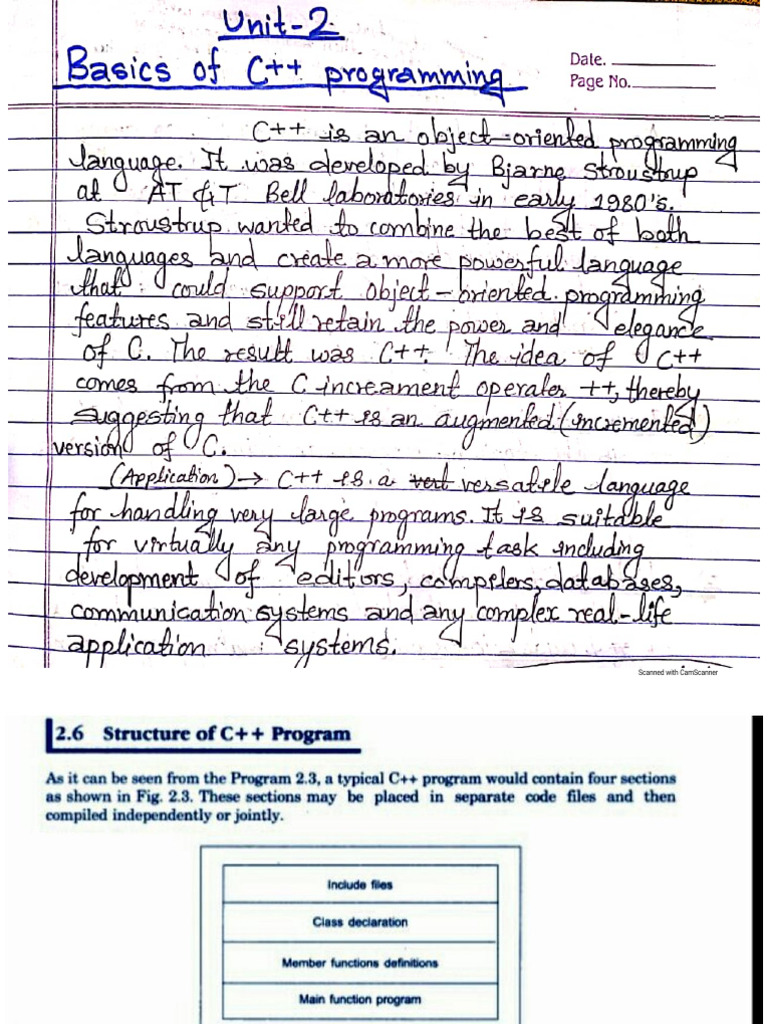 Unit-2
Basics of C++ programming
Date.
Page No.
C++ is an object-oriented programming
language. It was developed by Bjarne Stroustrup
at AT &T Bell laboratories in early 1980's.
Stroustrup wanted to combine the best of both
languages and create a more powerful language
that could support object-oriented programming
features and still retain the power and elegance
of C. The result was C++. The idea of C++
comes from the C increament operater ++, thereby
suggesting that C++ is an augmented (incremented)
version of C.
(Application) → C++ is a vert versatile language
for handling very large programs. It is suitable
for virtually any programming task including
development of editors, compilers, databases,
communication systems and any complex real-life
application systems.
Scanned with CamScanner
2.6 Structure of C++ Program
As it can be seen from the Program 2.3, a typical C++ program would contain four sections
as shown in Fig. 2.3. These sections may be placed in separate code files and then
compiled independently or jointly.
Include files
Class declaration
Member functions definitions
Main function program